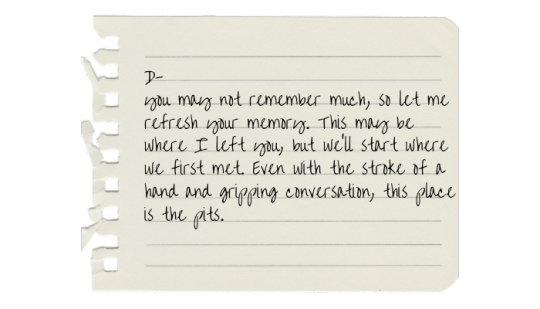 D-
you may not remember much, so let me
refresh your memory. This may be
where I left you, but we'll start where
we first met. Even with the stroke of a
hand and gripping conversation, this place
is the pits.